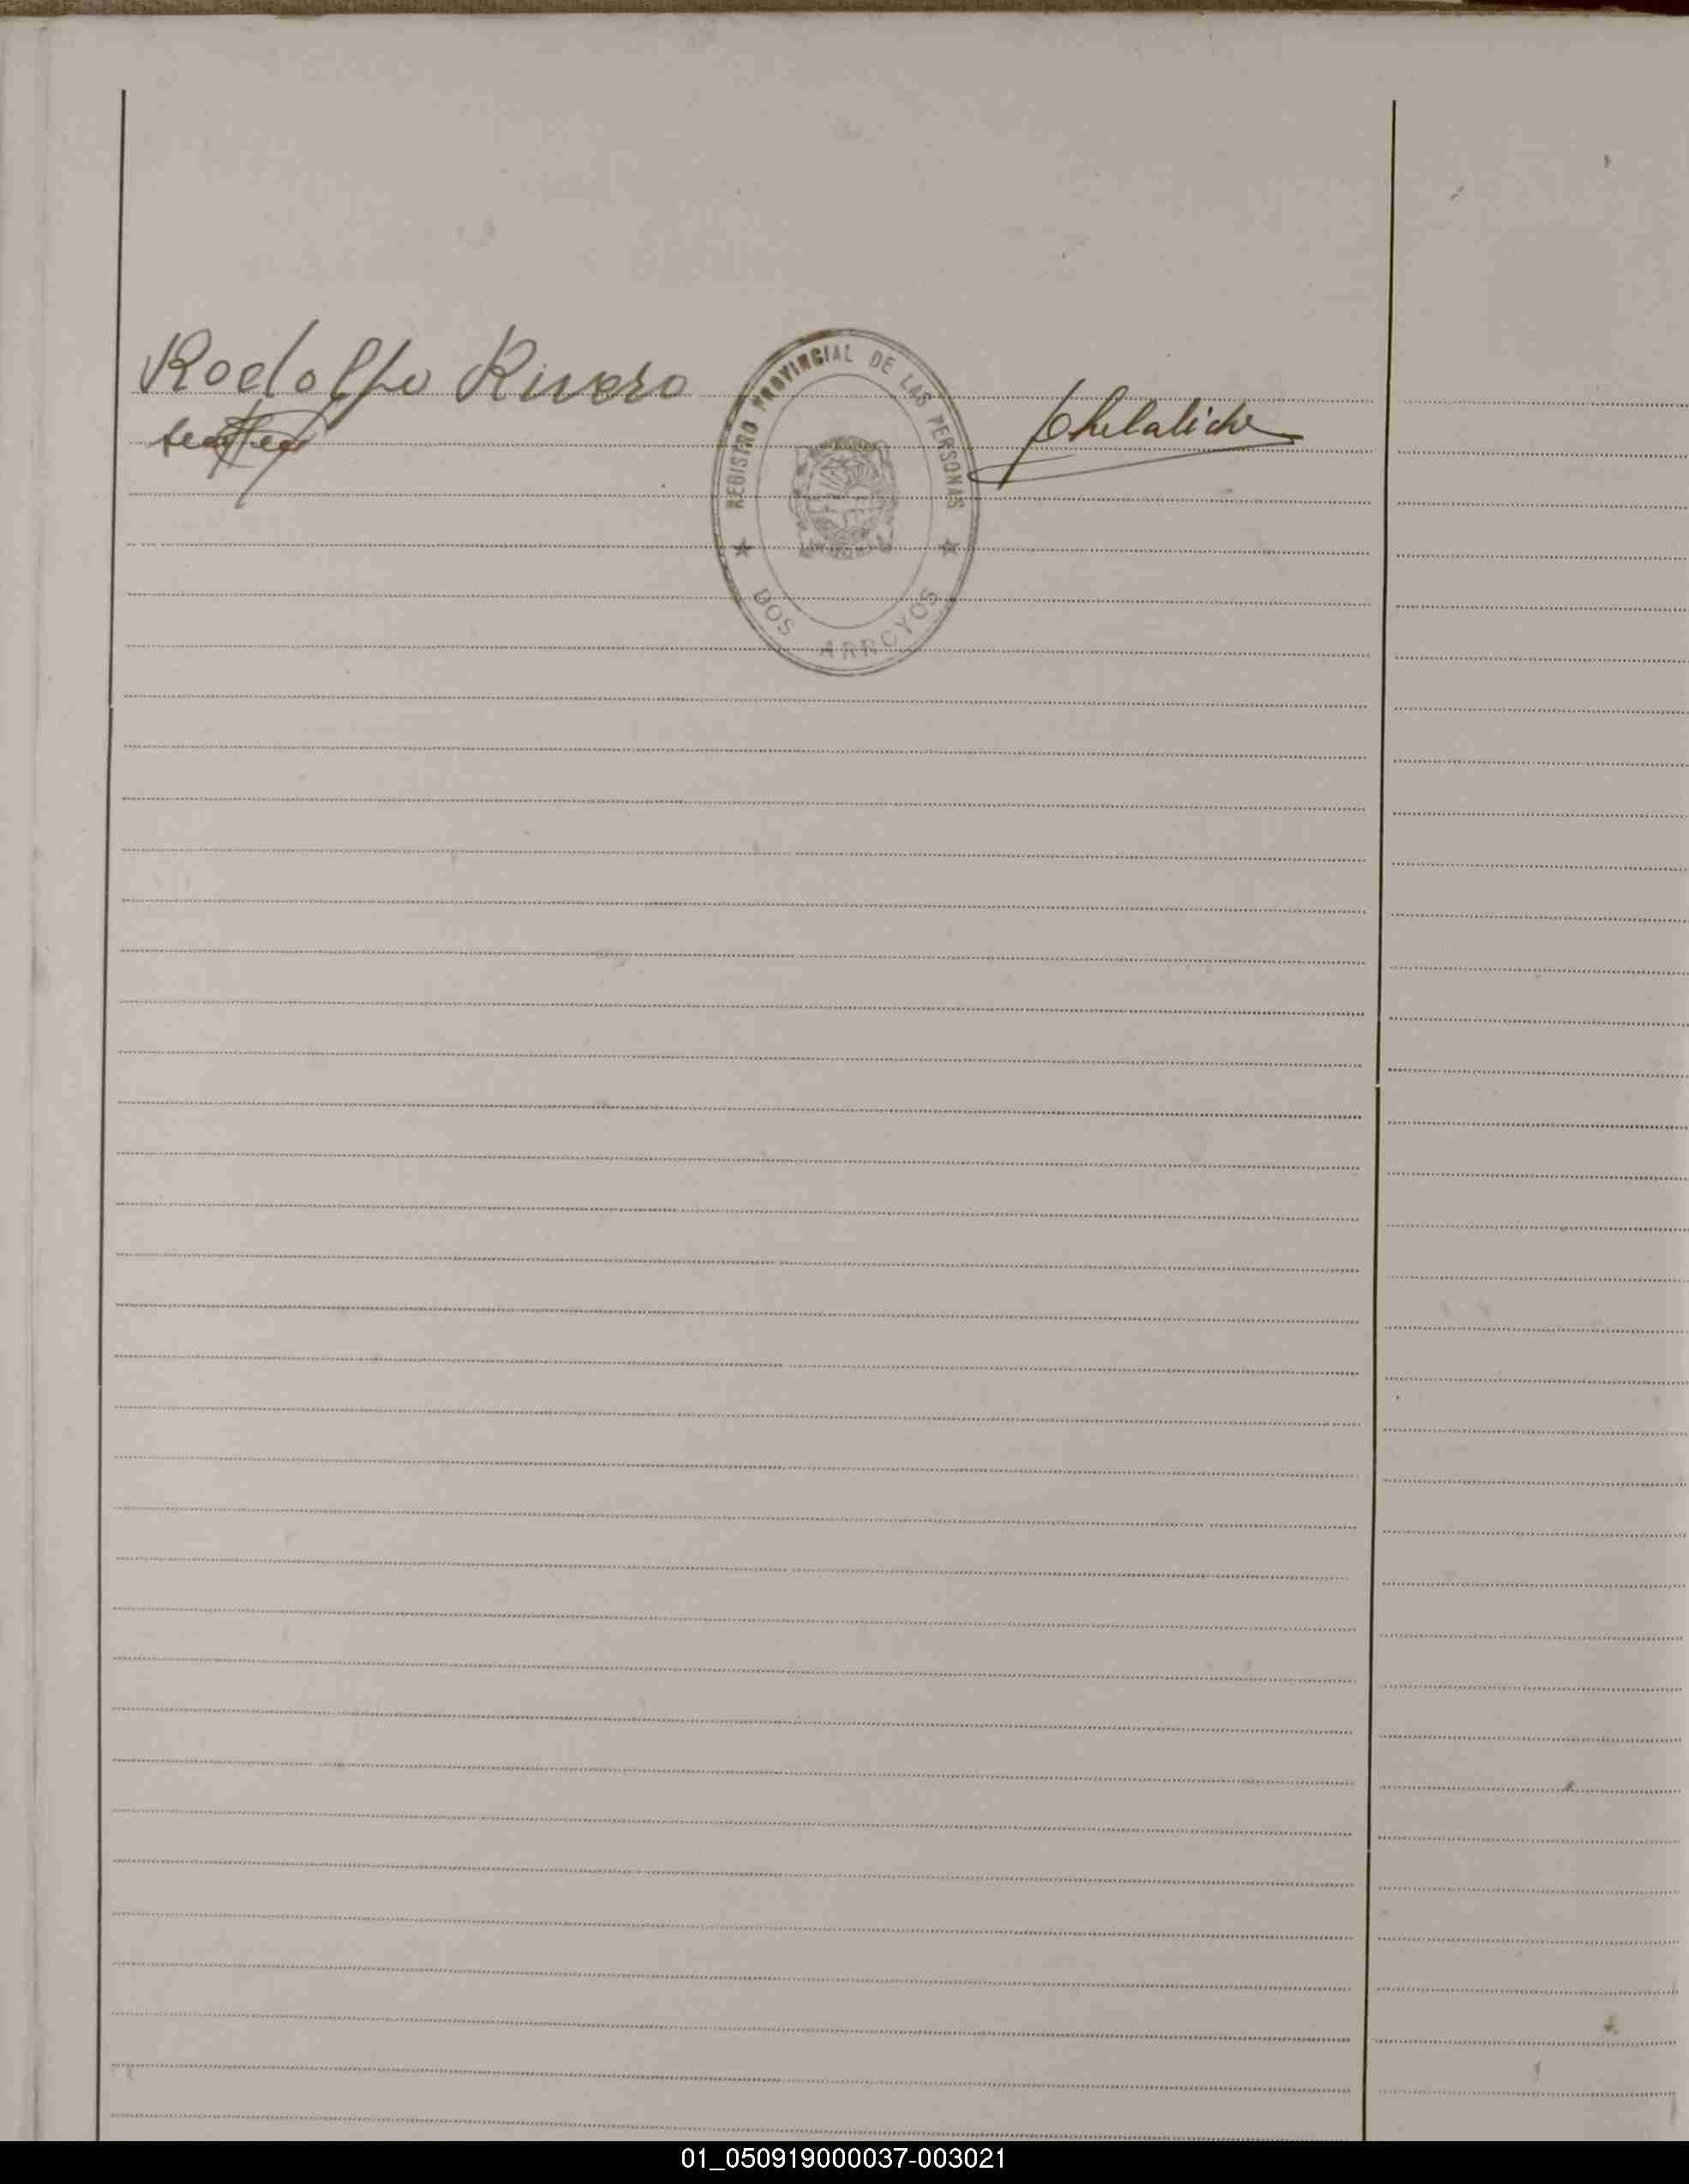 Rodolfo Rivero
REGISTRO PROVINCIAL DE LAS PERSONAS
DOS ARROYOS
01_050919000037-003021